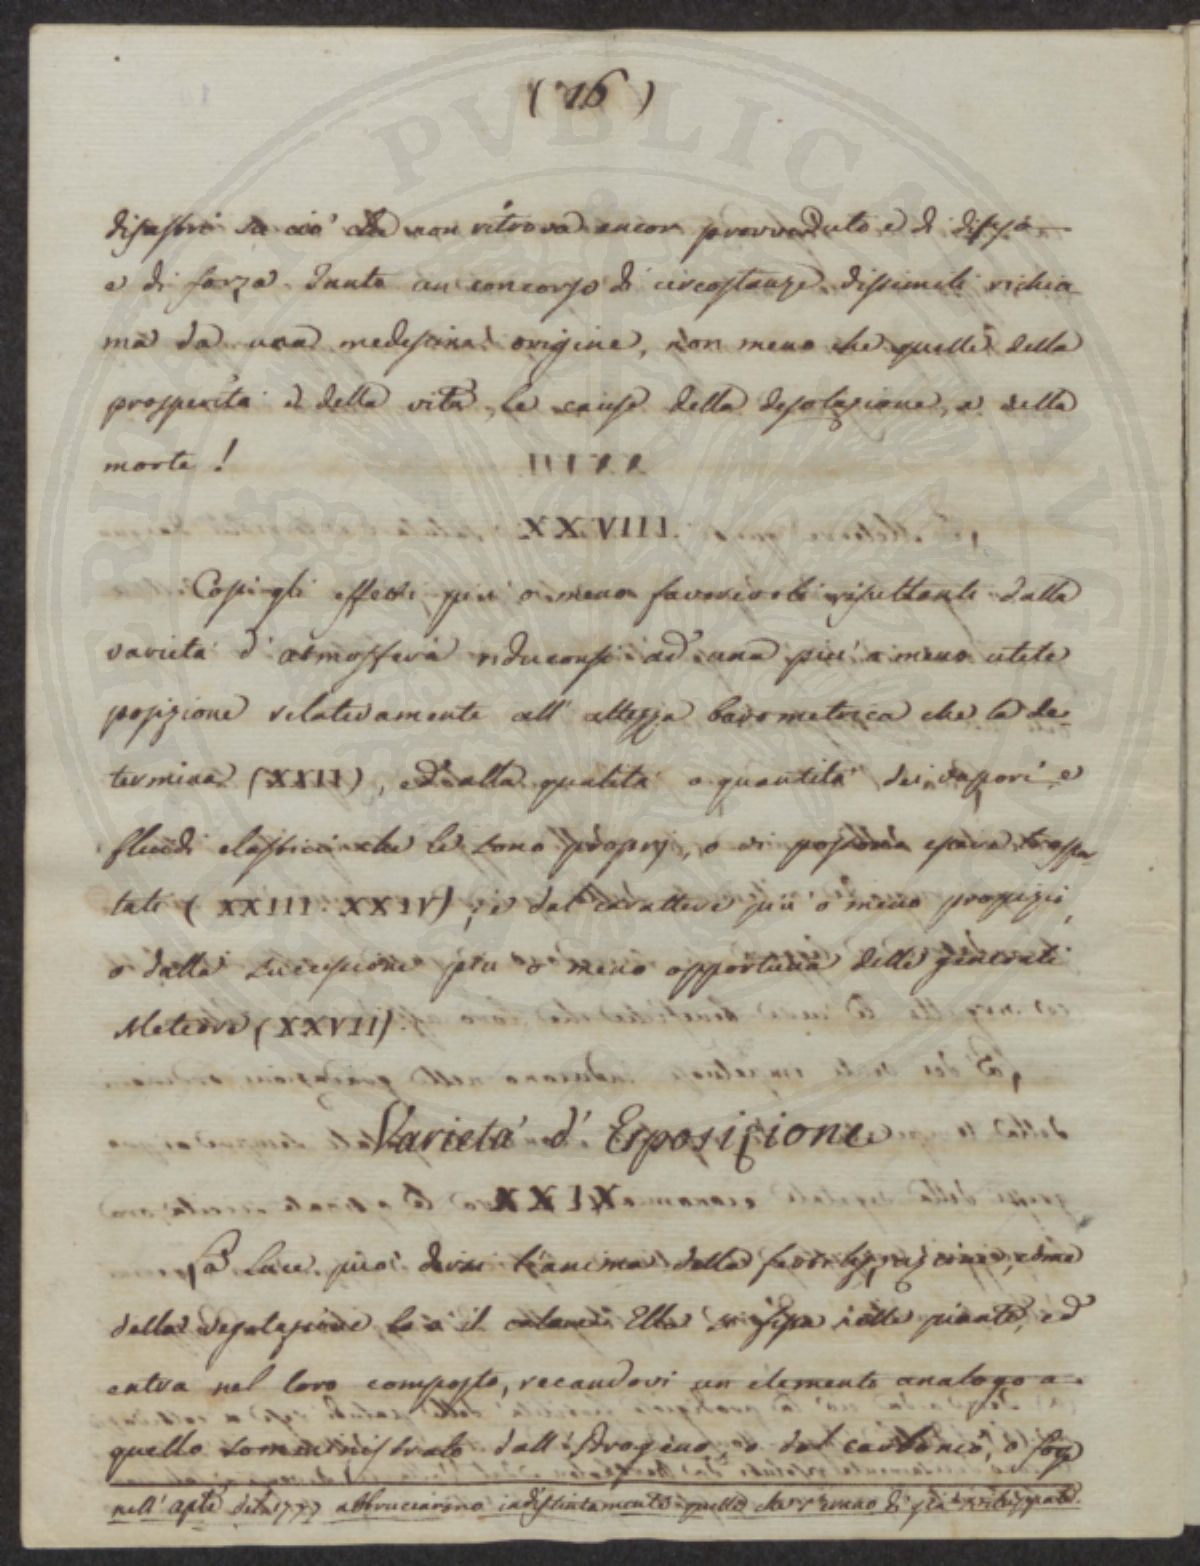 ( 16 )
disastri su ciò che non ritrova ancor provveduto e di difesa
e di forza. Tanto un concorso di circostanze dissimili richia-
ma da una medesima origine, non meno che quelle della
prosperità e della vita, le cause della desolazione, e della
morte!
XXVIII.
Così gli effetti più o meno favorevoli risultanti dalla
varietà d'atmosfera riduconsi ad una più o meno utile
posizione relativamente all' altezza barometrica che la de
termina (XXII), ed alla qualità o quantità dei vapori e
fluidi elastici che le sono proprj, o vi possono essere traspor-
tati (XXIII. XXIV); e dal carattere più o meno propizio,
o dalla successione più o meno opportuna delle generali
Meteore (XXVII).
Varietà d' Esposizione
XXIX
La Luce può dirsi l'anima della come
della vegetazione lo è il calore. Ella si fissa nelle piante, ed
entra nel loro composto, recandovi un elemento analogo a
quello somministrato dall' Idrogeno, o dal carbonio, o forse
nell' apte del 1777 abbruciarono indistintamente quelle che v'erano di già sviluppate.